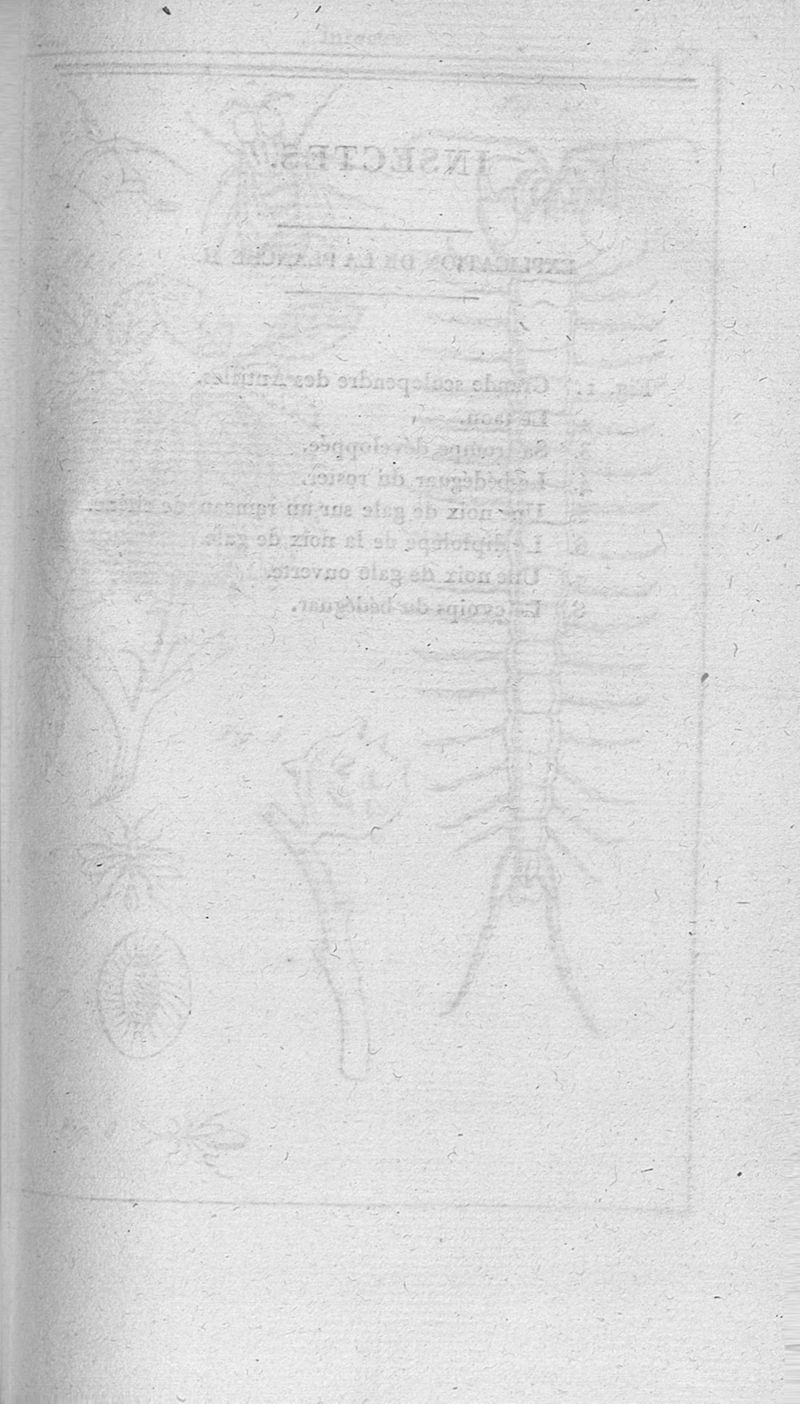 INSECTES.
EXPLICATION DE LA PLANCHE H.
Fig. 1. Grande scolopendre des Antilles.
2. Le taon.
3. Sa trompe développée.
4. Le bédéguar du rosier.
5. Une noix de gale sur un rameau de chêne.
6. Le diplolèpe de la noix de gale.
7. Une noix de gale ouverte.
8. Le cynips du bédéguar.